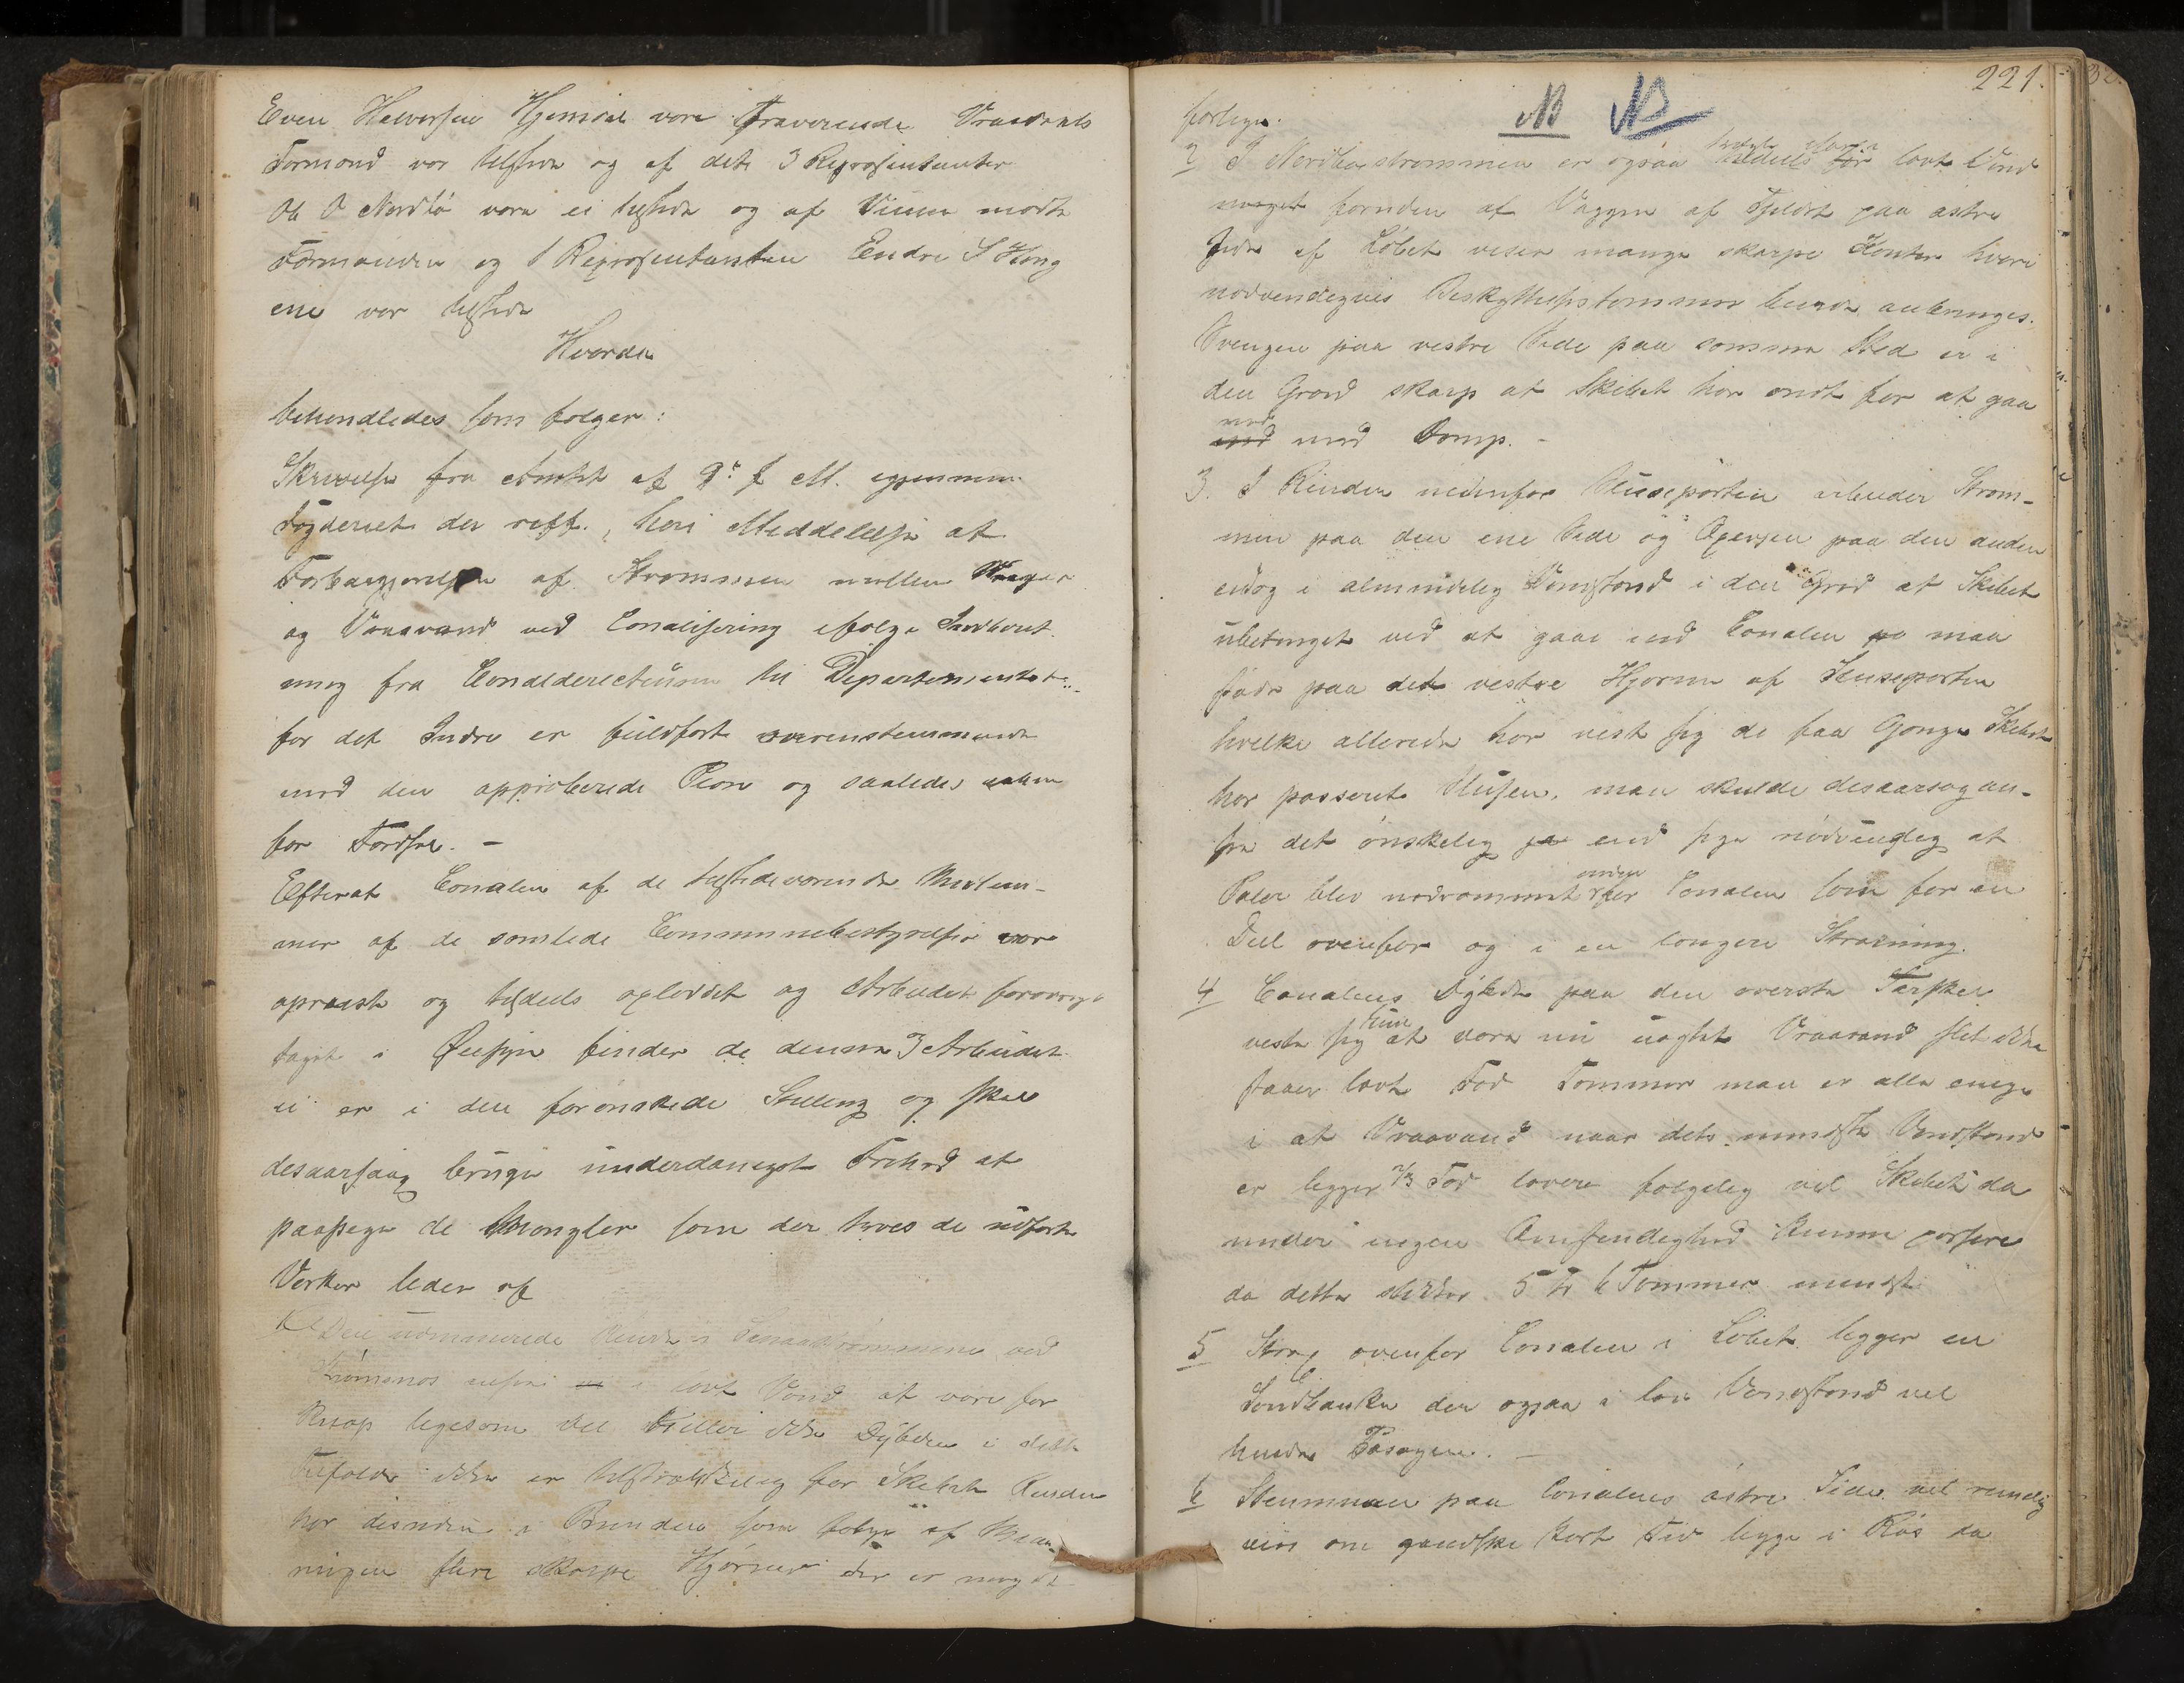 Even Halvorsen Hjemdal vare fraværende Vraadals
Formand var tilstede og af dets 3 Representanter
Ole O Nordbö vare ei tilstede og af Vinne mødte
Formanden og 1 Representanten Endre S Haug
ene var tilstede
Hvorda
behandledes som følger:
Skrivelse fra Amtet af 9de f M. igjennem
Fogderiet der reff., heri Meddelelse at
Farbargjørelsen af Strømmen mellem
og Vraavand ved Canalisering ifølge Indberet
ning fra Canaldirecteuren til Departementet
for det Indre er fuldført overenstemmende
med den approberede Plan og saaledes aaben
for Færdsel. -
Efterat Canalen af de tilstedeværende Medlem-
mer af de samlede Communebestyrelser var
opreist og tildeels oploddet og Arbeidet forøvrigt
taget i Øiesyn finder de denne Arbeidet
ei er i den forønskede Stilling og skal
desaarsaag bruge underdanigst Frihed at
paapege de Mangler som der hves de udførte
Verker leder af
1 Den udminerede Rende i ved
Strømsnes i lavt Vand at være for
Knap ligesom vel heller ikke Dybden i dette
Tilfælde ikke er tilstrækkelig for Skibet Renden
har desuden i Bunden som følge af Mine-
ringen flere skarpe Hjørner der er meget
221.
farlige.
NB NB
2 I Nordbøstrømmen er ogsaa lavt Vand
meget foruden af Væggen af Fjeldet paa østre
Side af Løbet viser mange skarpe Kanter hvori
nødvendigvis Beskyttelsstømmer burde anbringes.
Svingen paa vestre Side paa samme Sted er i
den Grad skarp at Skibet har ondt for at gaa
ned med Damp. -
3. I Renden nedenfor Sluseporten arbeider Strøm-
men paa den ene Side og paa den anden
endog i almindelig Vandstand i den Grad at Skibet
ubetinget ved at gaa ind Canalen maa
støde paa det vestre Hjørne af Sluseporten
hvilke allerede har vist sig de faa Gange Skibet
har passeret Slusen, man skulde desaarsag an-
se det ønskelig ja end sige nødvendig at
Pæler blev nedrammet nedenfor Canalen som for en
Deel ovenfor og i en længere Strækning.
4 Canalens Dybde paa den øverste Tærskel
viste sig kun at være nu uagtet Vraavand slet ikke
staaer lavt Fod Tommer man er alle enige
i at Vraavand naar dets mindste Vandstand
er ligger 2/3 Fod lavere følgelig vil Skibet da
under ingen Omstændighed kunne passere
da dette stikker 5 Fod 6 Tommer mindst
5 Strax ovenfor Canalen i Løbet ligger en
Sandbanke der ogsaa i lav Vandstand vil
hindre Passagen. -
6 Steenmuren paa Canalens østre Side vil rimelig
viis om gandske kort Tid ligge i Røs da